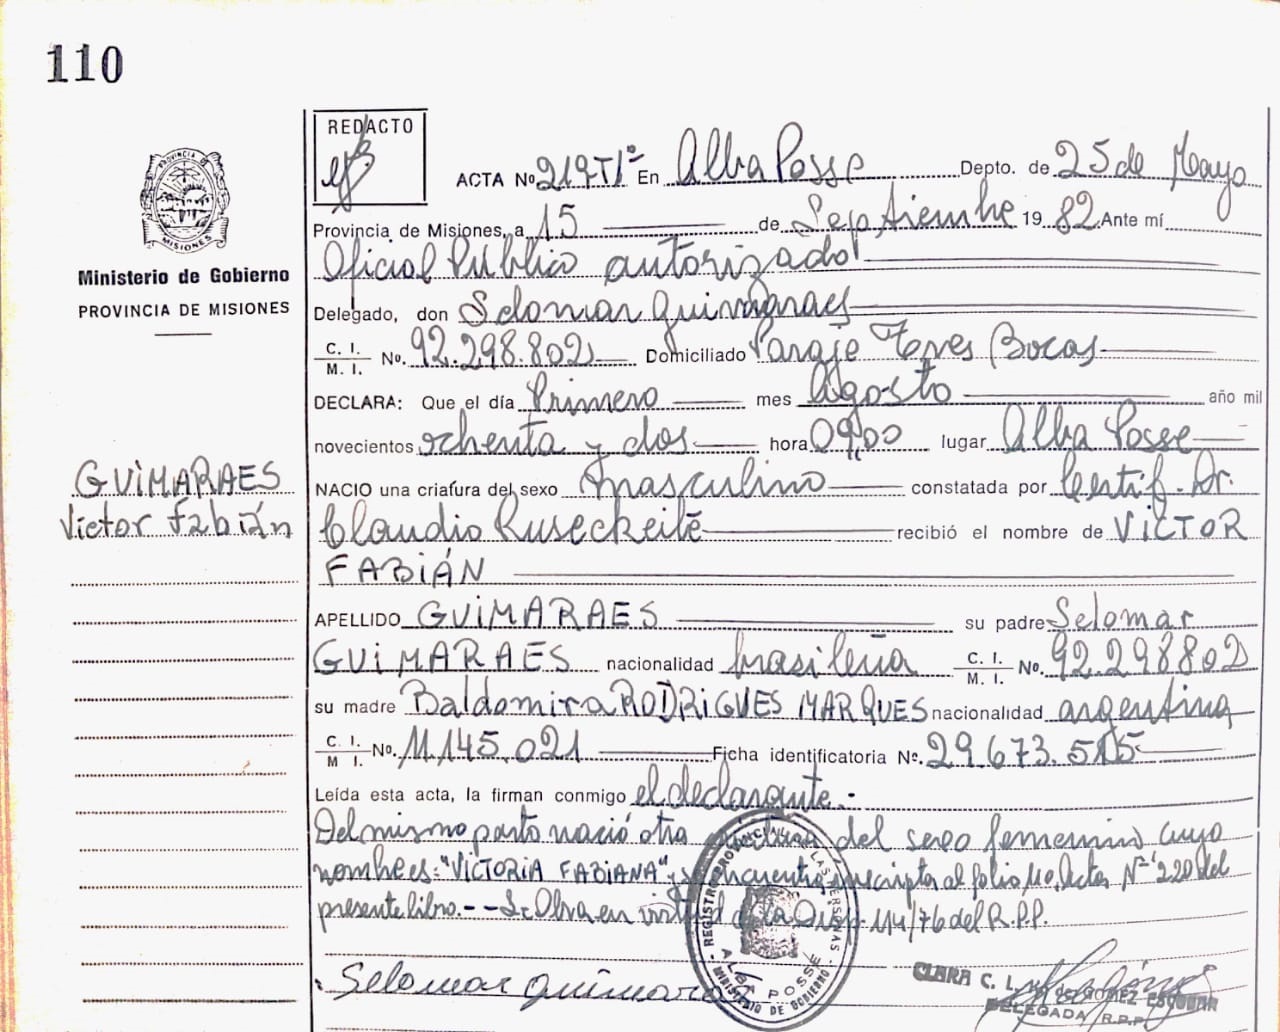 110
REDACTO
PROVINCIA DE
MISIONES
Ministerio de Gobierno
PROVINCIA DE MISIONES
ACTA No 219-TIº En Alba Posse Depto. de 25 de Mayo
Provincia de Misiones, a 15 de Septiembre 1982 Ante mí
Oficial Público autorizado
Delegado, don Selomar Guimaraes
C. I. M. I. No. 92.298.802 Domiciliado Paraje Tres Bocas
DECLARA: Que el día Primero mes Agosto año mil
novecientos ochenta y dos hora 09,00 lugar Alba Posse
NACIO una criatura del sexo masculino constatada por Certif. Dr.
Claudio Ruseckeite recibió el nombre de VICTOR
FABIÁN
GUIMARAES
Victor Fabián
APELLIDO GUIMARAES su padre Selomar
GUIMARAES nacionalidad brasileña C. I. M. I. No. 92.298802
su madre Baldomira RODRIGUES MARQUES nacionalidad argentina
C. I. M I. No. 11.145.021 Ficha identificatoria No. 29.673.515
Leída esta acta, la firman conmigo el declarante.-
Del mismo parto nació otra del sexo femenino cuyo
nombre es: "VICTORIA FABIANA" y se encuentra inscripta al folio 110, Acta Nº 220 del
presente libro.- - S- Obra en virtud de la Disp. 114/76 del R.P.P.
REGISTRO PROVINCIAL DE LAS PERSONAS
ALBA POSSE
MINISTERIO DE GOBIERNO
Selomar Guimaraes
CLARA C. L. de GOMEZ ESCOBAR
DELEGADA R.P.P.